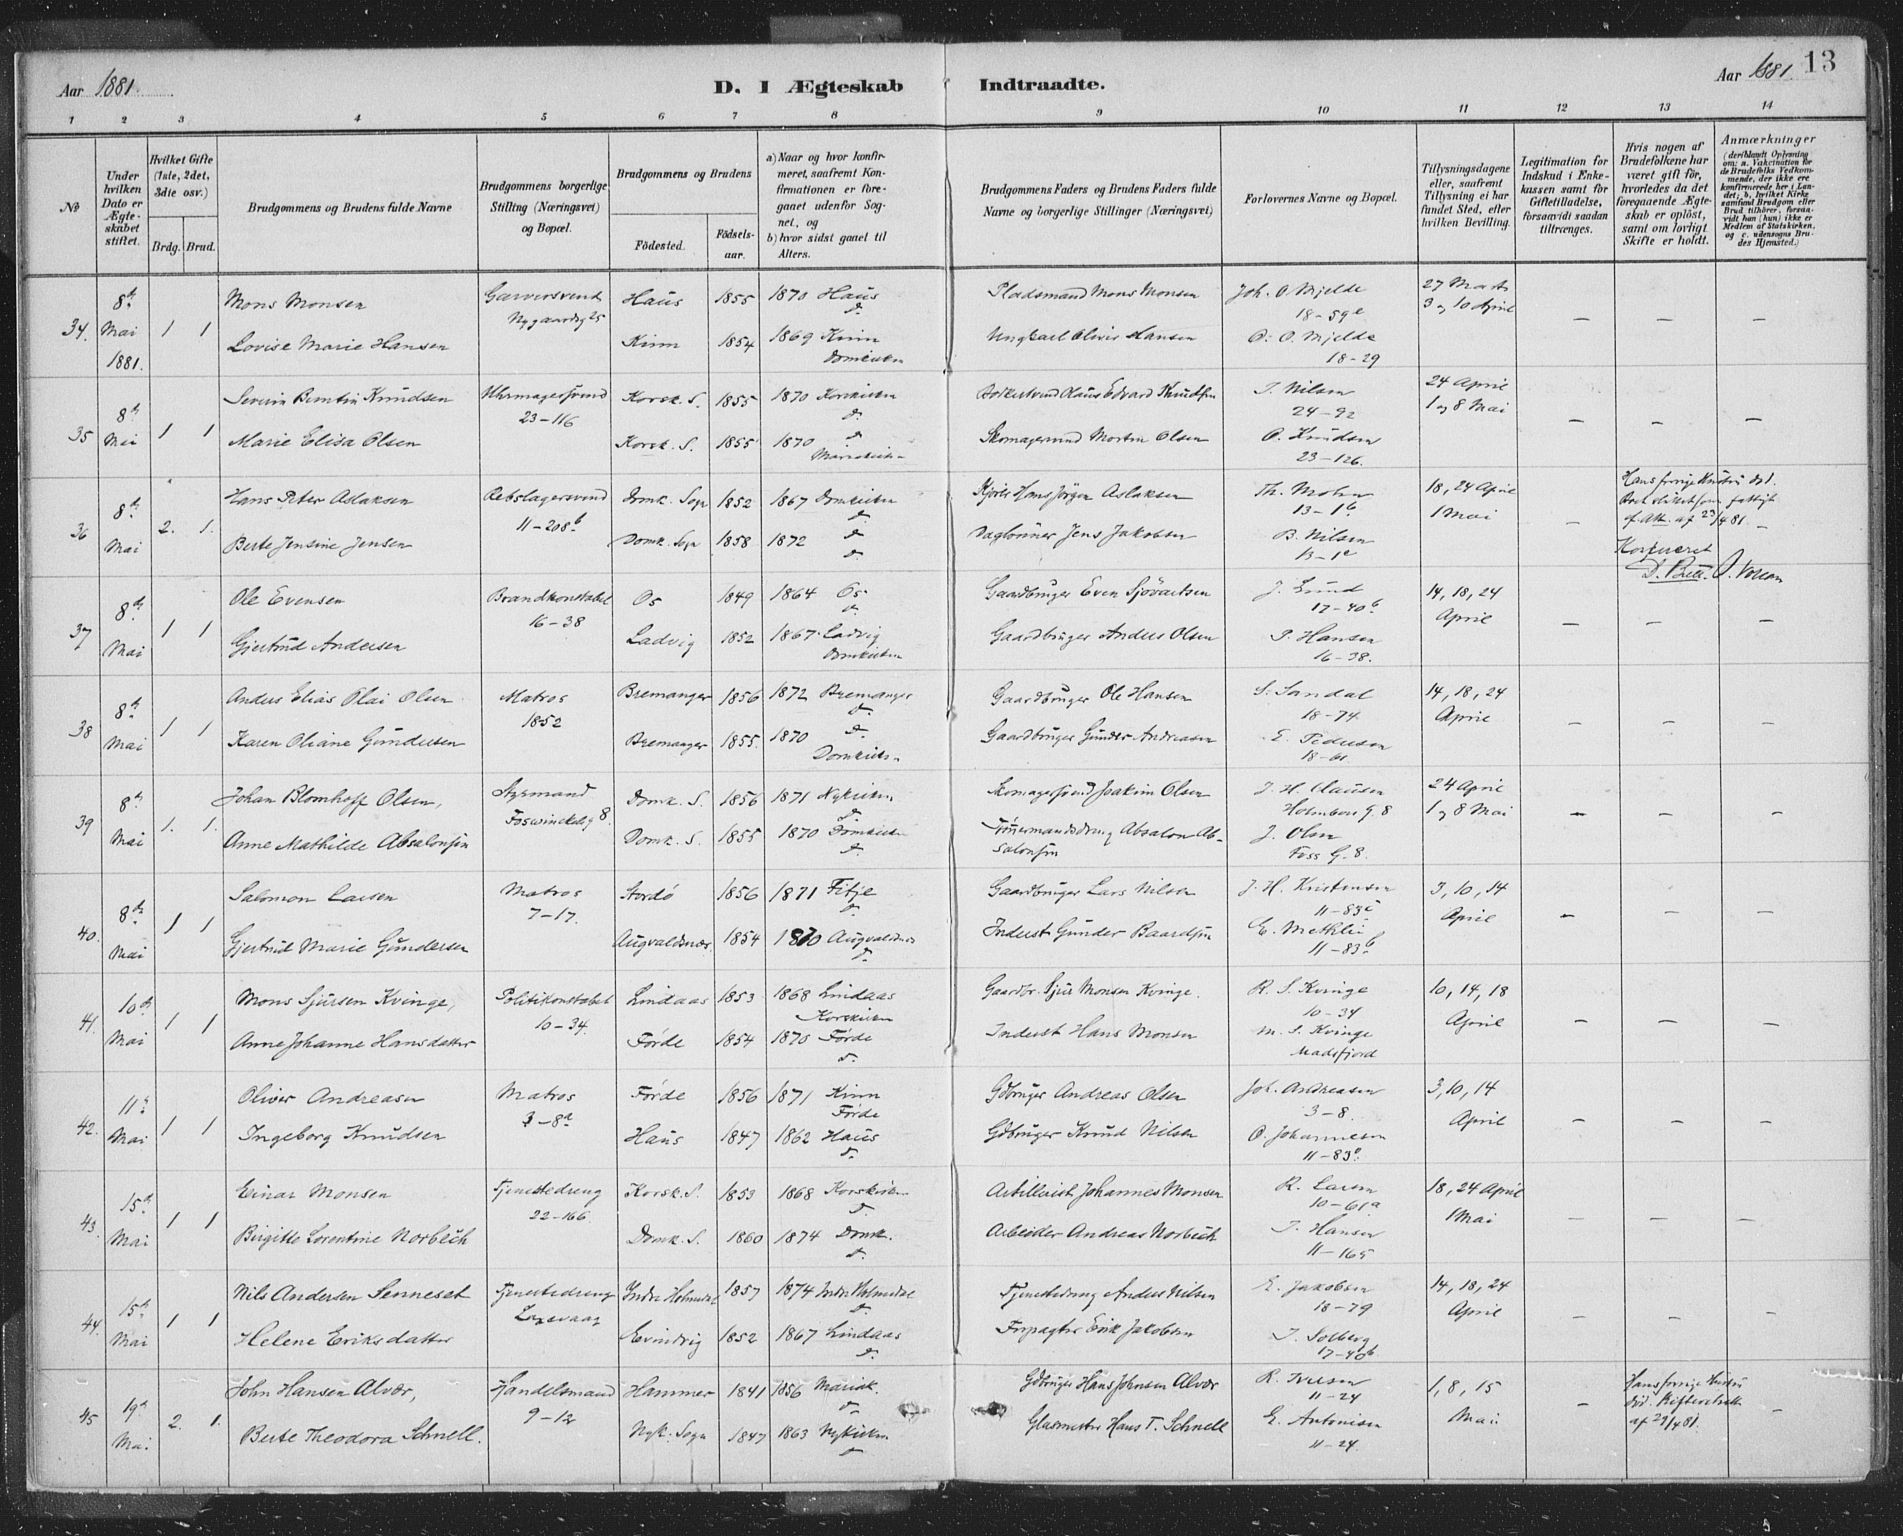 Aar 1881.
D. I Ægteskab Indtraadte.
Aar 1881. 13
1 2 3 4 5 6 7 8 9 10 11 12 13 14
No
Under hvilken Dato er Ægteskabet stiftet.
Hvilket Gifte (1ste, 2det, 3die osv.)
Brdg. Brud.
Brudgommens og Brudens fulde Navne
Brudgommens borgerlige Stilling (Næringsvei) og Bopæl.
Brudgommens og Brudens
Fødested.
Fødselsaar.
a) Naar og hvor konfirmeret, saafremt Konfirmationen er foregaaet udenfor Sognet, og
b) hvor sidst gaaet til Alters.
Brudgommens Faders og Brudens Faders fulde Navne og borgerlige Stillinger (Næringsvei)
Forlovernes Navne og Bopæl.
Tillysningsdagene eller, saafremt Tillysning ei har fundet Sted, efter hvilken Bevilling.
Legitimation for Indskud i Enkekassen samt for Giftetilladelse, forsaavidt saadan tiltrænges.
Hvis nogen af Brudefolkene har været gift før, hvorledes da det foregaaende Ægteskab er opløst, samt om lovligt Skifte er holdt.
Anmærkninger (deriblandt Oplysning om: a. Vakcination for de Brudefolks Vedkommende, der ikke ere konfirmerede her i Landet; b. hvilket Kirkesamfund Brudgom eller Brud tilhører, forsaavidt han (hun) ikke er Medlem af Statskirken, og c. udensogns Brudes Hjemsted.)
34. 8de Mai 1881. 1 1
Mons Monsen Garversvend Nygaardsg 25 Haus 1855 1870 Haus do Pladsmand Mons Monsen Joh. O. Mjelde 18-59e 27 Marts 3 og 10 April – – –
Lovise Marie Hansen Kinn 1854 1869 Kinn Domkirken Ungkarl Oliver Hansen O. O. Mjelde 18-29
35 8de Mai 1 1
Severin Berntin Knudsen Uhrmagersvend 23-116 Korsk. S. 1855 1870 Korskirken do Klaus Edvard Knudsen T. Nilsen 24-92 24 April 1 og 8 Mai – – –
Marie Elisa Olsen Korsk. S. 1855 1870 do Mariekirken Skomagersvend Morten Olsen O. Knudsen 23-126.
36 8de Mai 2. 1.
Hans Peter Aslaksen Rebslagersvend 11-208b Domk. Sogn 1852 1867 Domkirken do Hans Jørgen Aslaksen Th. Mohn 13-1b 18, 24 April 1 Mai – Hans forrige Hustru død. fattigt af 23/4 81. –
Berte Jensine Jensen Domk. Sogn 1858 1872 do do Daglønner Jens Jakobsen B. Nilsen 13-1c
37 8de Mai 1 1
Ole Evensen Brandkonstabel 16-38 Os 1849 1864 Os do Gaardbruger Even Sjøvartsen J. Lund 17-40b 14, 18, 24 April – – –
Gjertrud Andersen Ladvig 1852 1867. Ladvig Domkirken Gaardbruger Anders Olsen T. Hansen 16-38.
38 8de Mai 1 1
Anders Elias Olai Olsen Matros 1852 Bremanger 1856 1872 Bremanger do Gaardbruger Ole Hansen S. Sandal 18-74 14, 18, 24 April – – –
Karen Oliane Gundersen Bremanger 1855. 1870 do Domkirken Gaardbruger Gunder Andreasen E. Pedersen 18-61
39 8de Mai 1. 1.
Johan Blomhoff Olsen, Styrmand Foswinckelsg 8. Domk. S. 1856 1871 Nykirken do Skomagersvend Joakim Olsen J. H. Clausen Holmboes G. 8 24 April 1 og 8 Mai – – –
Anne Mathilde Absalonsen Domk. S. 1855 1870 Domkirken do Tømmermandsdreng Absalon Absalonsen J. Olsen Foss G. 8.
40. 8de Mai 1 1
Salomon Larsen Matros 7-17. Stordø 1856 1871 Fitje do Gaardbruger Lars Nilsen J. H. Kristensen 11-83c 3, 10, 14 April – – –
Gjertrud Marie Gundersen Augvaldsnæs 1854 1870 Augvaldsnæs do Inderst Gunder Baardsen E. Methlie 11-83b
41. 10de Mai 1 1
Mons Sjursen Kvinge, Politikonstabel 10-34. Lindaas 1853 1868 Lindaas Korskirken Gaardbr. Sjur Monsen Kvinge. R. S. Kvinge 10-34 10, 14, 18 April – – –
Anne Johanne Hansdatter Førde 1854 1870 Førde do Inderst Hans Monsen M. S. Kvinge Masfjord
42. 11te Mai 1 1
Oliver Andreasen Matros 3-8a Førde 1856 1871 Kinn Førde Gdbruger Andreas Olsen Joh. Andreasen 3-8. 3, 10, 14 April – – –
Ingeborg Knudsen Haus 1847 1862 Haus do Gdbruger Knud Nilsen O. Johannesen 11-83c.
43. 15de Mai 1 1
Einar Monsen Tjenestedreng 22-166 Korsk. S. 1853 1868 Korskirken do Artillerist Johannes Monsen R. Larsen 10-61a 18, 24 April 1 Mai – – –
Birgitte Lorentine Norbech Domk. S. 1860 1874 Domk. do Arbeider Andreas Norbech T. Hansen 11-165
44. 15de Mai 1 1
Nils Andersen Senneset Tjenestedreng Laxevaag Indre Holmedal 1857 1874 Indre Holmedal do Tjenestedreng Anders Nilsen E. Jakobsen 18-79 14, 18, 24 April – – –
Helene Eriksdatter Evindvig 1852 1867 Lindaas do. Forpagter Erik Jakobsen T. Solberg 17-40b
45 19de Mai 2. 1.
John Hansen Alvær, Handelsmand 9-12 Hammer 1841 1856 Mariak. do Gdbruger Hans Johnsen Alvær R. Iversen 11-24 1, 8, 15 Mai – Hans forrige Hustru død. Skifteattest af 29/4 81. –
Berte Theodora Schnell. Nyk. Sogn 1847 1863 Nykirken do Glasmester Hans T. Schnell E. Antonisen 11-24.